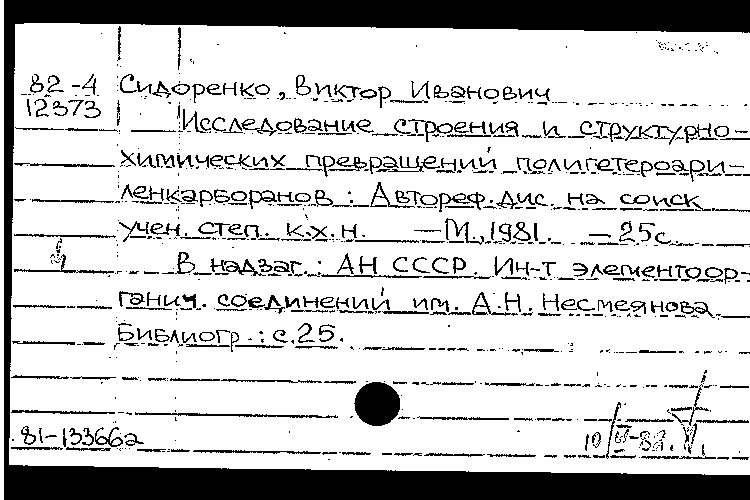 82-4 Сидоренко, Виктор Иванович
12373
Исследование строения и структурно-
химических превращений полигетероари-
ленкарборанов : Автореф. дис. на соиск
учен. степ. к.х.н. — М., 1981. — 25с.
В надзаг.: АН СССР. Ин-т элементоор-
ганич. соединений им. А.Н. Несмеянова.
Библиогр.: с.25.
81-133662